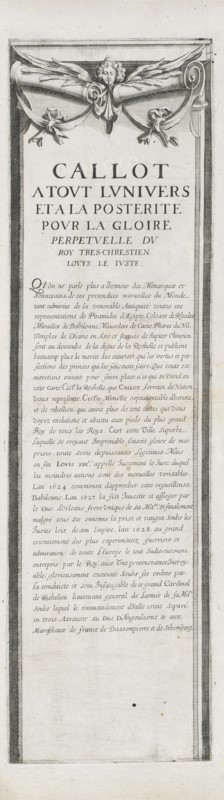 CALLOT
A TOVT LVNIVERS
ET A LA POSTERITE
POVR LA GLOIRE
PERPETVELLE DV
ROY TRES-CHRESTIEN
LOVYS LE IVSTE
Qu'on ne parle plus a l'honneur des Monarques et
de ces pretendues merveilles du Monde,
tant admirées de la venerable Antiquité: toutes ces
representations de Piramides d'Egipte, Colosse de Rhodes
Murailles de Babilonne, Mausolée de Carie, Phare du Nil
Temples de Diane en et statues de Jupiter Olimpien
sont au dessoubs de la digue de la Rochelle et publient
beaucoup plus le merite des ouvriers que les vertus et per-
fections des princes qui les faisoient faire. Que toute
cette Carte C'est la Rochelle que CALLOT
vous represente. C'est
et de rebellion, qui
voyez au pieds du plus grand
Roy de tous les Roys. Cart cette Ville superbe,
laquelle se croyant Imprenable faisoit gloire de mes-
priser toute sorte de puissances legitimes. Mais
LOVIS XIII, appellé Justement le Juste duquel
les moindres actions sont des merveilles veritables,
l'an 1624 commença d'approcher cette orgueilleuse
Babilonne. L'an 1627 la fist Investir et assieger par
le Duc d'Orleans frere Vnique de sa Ma.té Et finalement
malgré tous ses ennemis la prist et rangea soubs les
Justes loix de son Empire, l'an 1628 au grand
estonnement des plus experimentez guerriers et
admiration de toute l'Europe le tout Judicieusement
entrepris par le Roy, avec Vne perseverance Incroy-
able: glorieusement executé soubs ses ordres par
la conduicte et soin Infatigable de ce grand Cardinal
de Richelieu lieutenant general de l'armée de sa Ma.té
soubs lequel le commandement d'Icelle estoit Separé
en trois Assavoir au Duc d'Angoulesme et aux
Mareschaux de france de Bassompierre et de Schomberg.